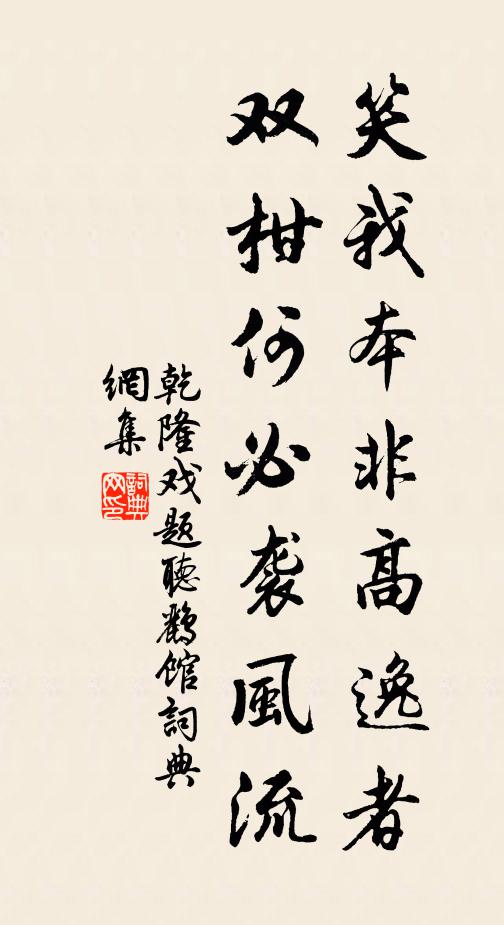 笑我本非高逸者
双柑何必袭風流
乾隆戏题聽鸝馆詞典
網集
詞典
网印